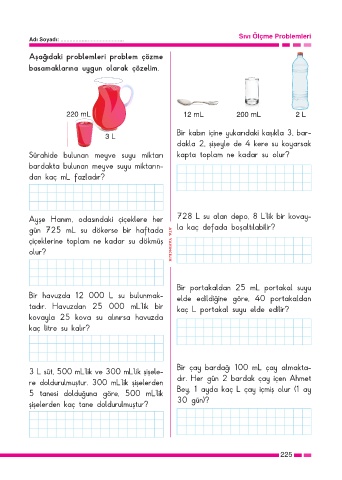 Sıvı Ölçme Problemleri
Adı Soyadı: ..............................
Aşağıdaki problemleri problem çözme
basamaklarına uygun olarak çözelim.
220 mL
3 L
Sürahide bulunan meyve suyu miktarı
bardakta bulunan meyve suyu miktarın-
dan kaç mL fazladır?
Ayşe Hanım, odasındaki çiçeklere her
gün 725 mL su dökerse bir haftada
çiçeklerine toplam ne kadar su dökmüş
olur?
Bir havuzda 12 000 L su bulunmak-
tadır. Havuzdan 25 000 mL'lik bir
kovayla 25 kova su alınırsa havuzda
kaç litre su kalır?
3 L süt, 500 mL'lik ve 300 mL'lik şişele-
re doldurulmuştur. 300 mL'lik şişelerden
5 tanesi dolduğuna göre, 500 mL'lik
şişelerden kaç tane doldurulmuştur?
12 mL 200 mL 2 L
Bir kabın içine yukarıdaki kaşıkla 3, bar-
dakla 2, şişeyle de 4 kere su koyarsak
kapta toplam ne kadar su olur?
728 L su alan depo, 8 L'lik bir kovay-
la kaç defada boşaltılabilir?
Bir portakaldan 25 mL portakal suyu
elde edildiğine göre, 40 portakaldan
kaç L portakal suyu elde edilir?
Bir çay bardağı 100 mL çay almakta-
dır. Her gün 2 bardak çay içen Ahmet
Bey, 1 ayda kaç L çay içmiş olur (1 ay
30 gün)?
225